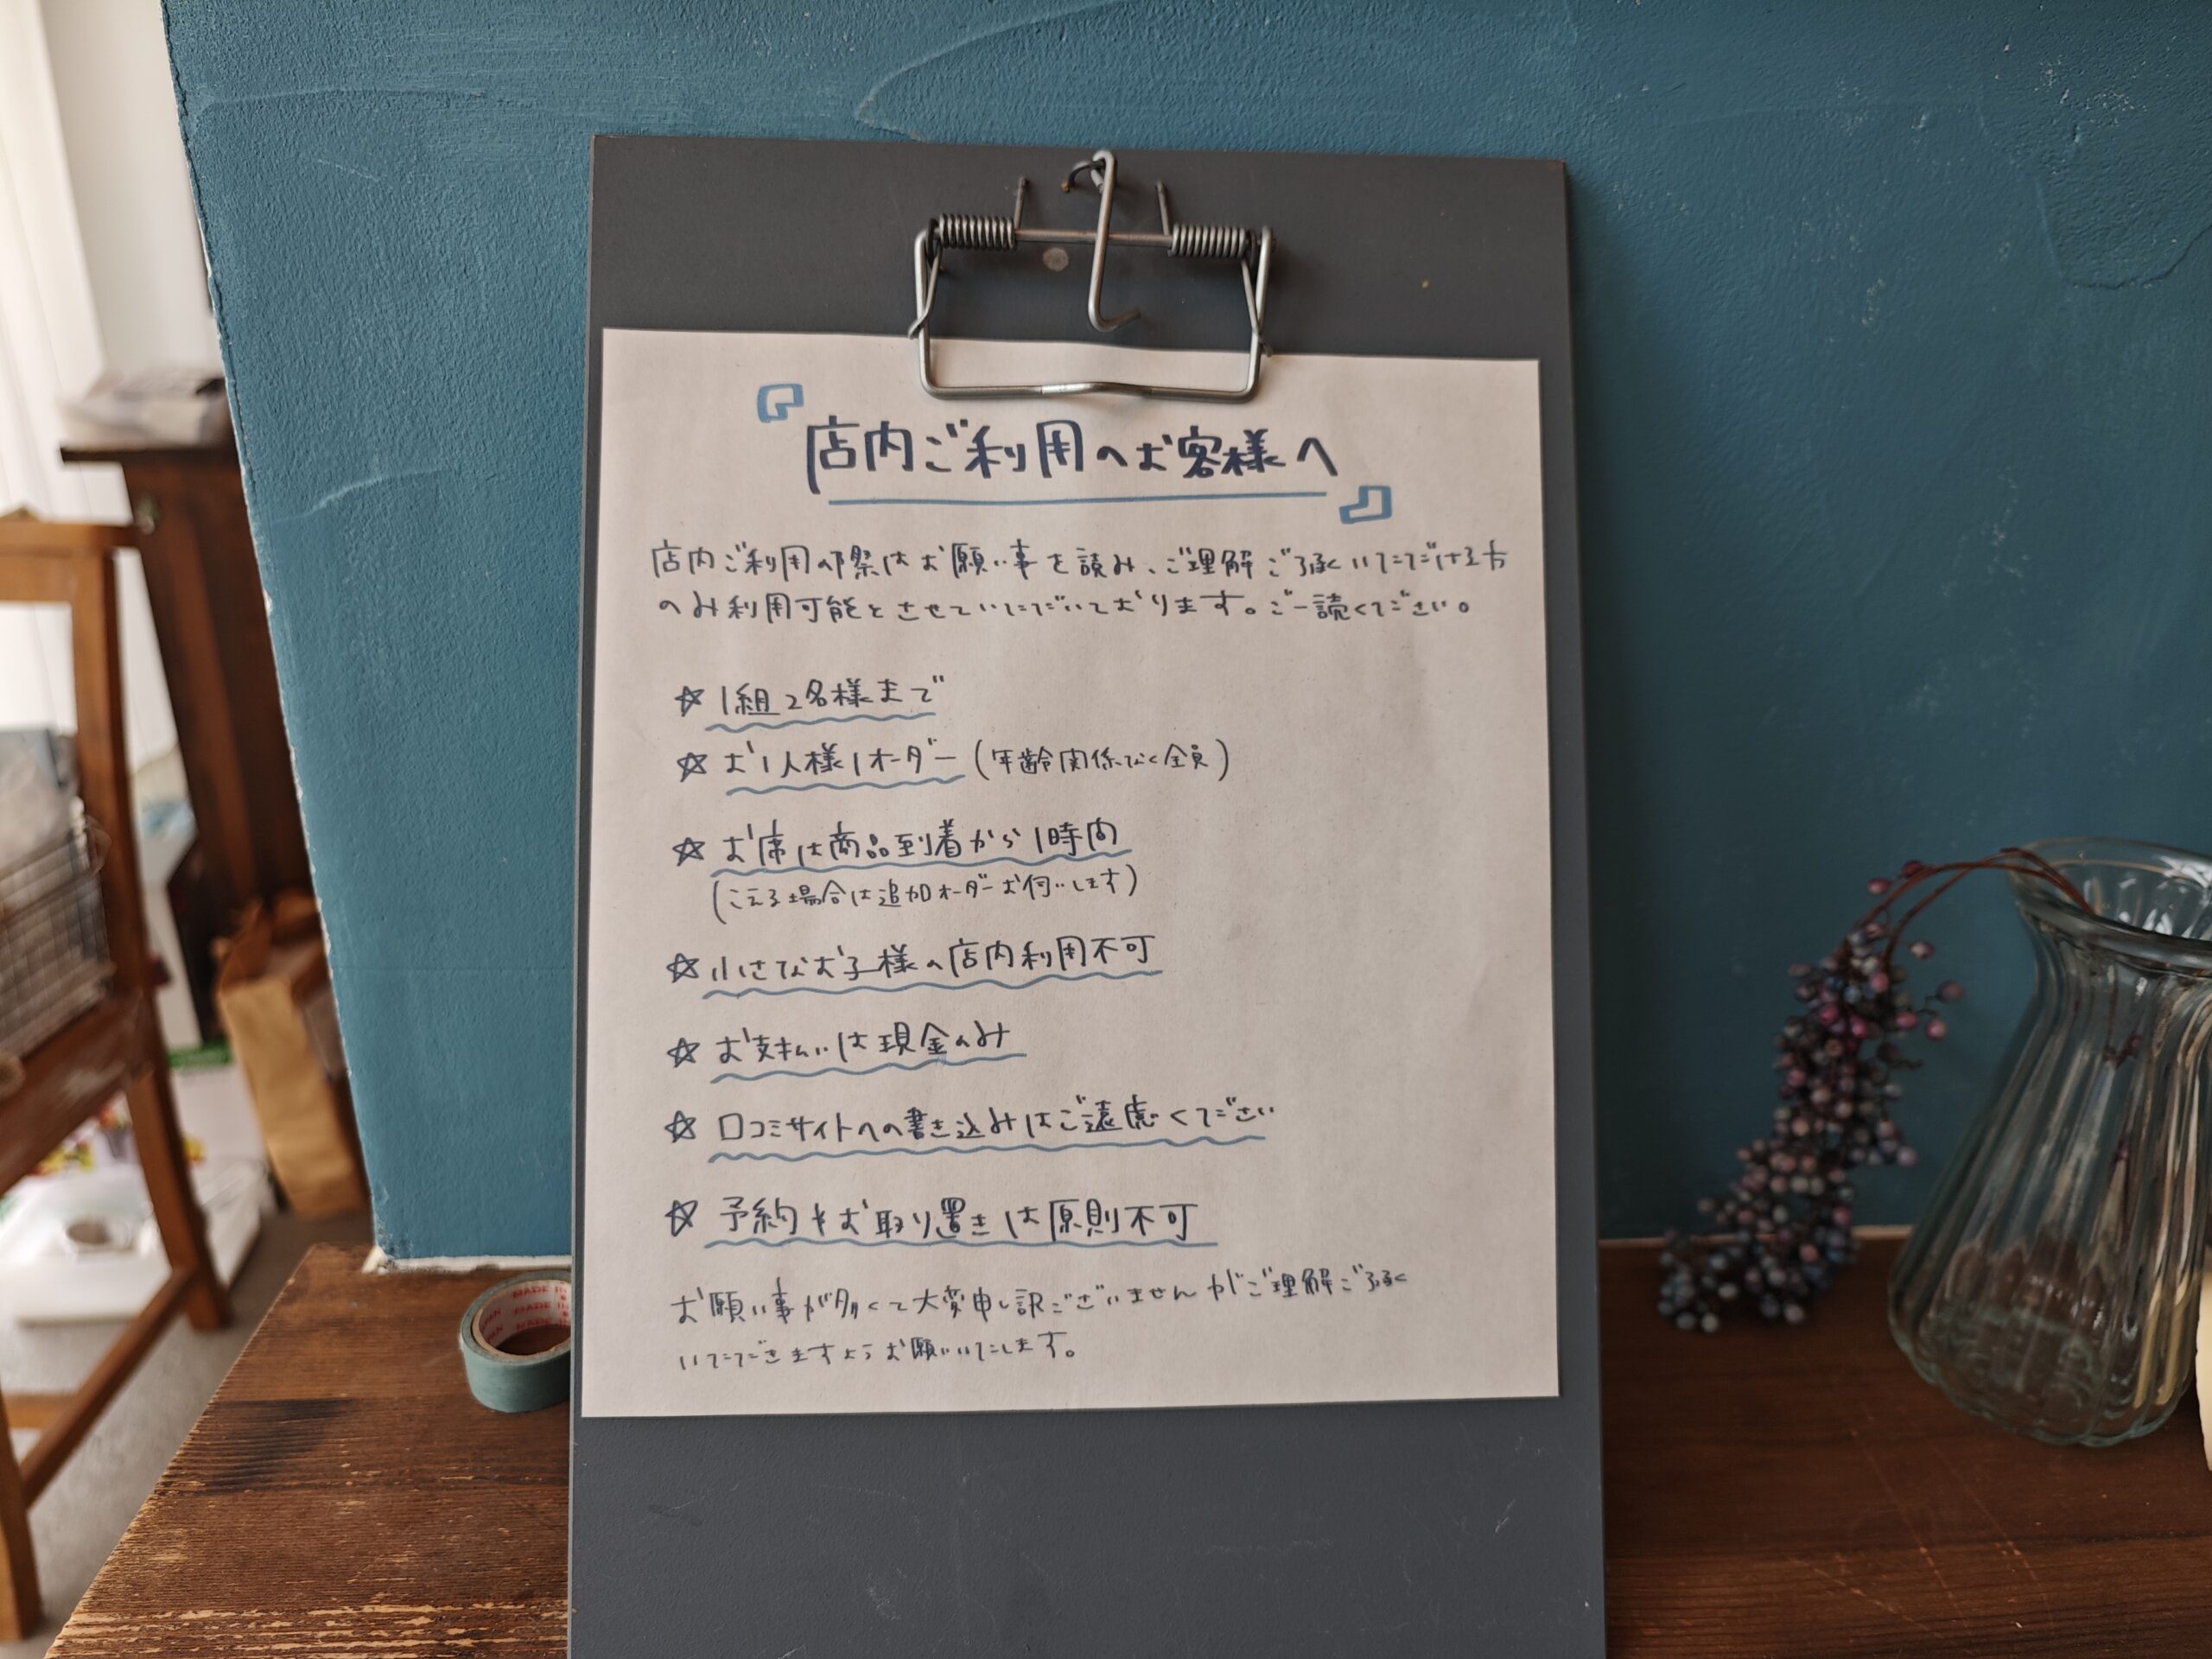 『店内ご利用のお客様へ』
店内ご利用の際はお願い事を読み、ご理解ご了承いただける方
のみ利用可能とさせていただいております。ご一読ください。
☆ 1組2名様まで
☆ お1人様1オーダー(年齢関係なく全員)
☆ お席は商品到着から1時間
(こえる場合は追加オーダーお伺いします)
☆ 小さなお子様の店内利用不可
☆ お支払いは現金のみ
☆ 口コミサイトへの書き込みはご遠慮ください
☆ 予約やお取り置きは原則不可
お願い事が多くて大変申し訳ございませんがご理解ご了承
いただきますようお願いいたします。
MADE IN
PAN
MADE IN